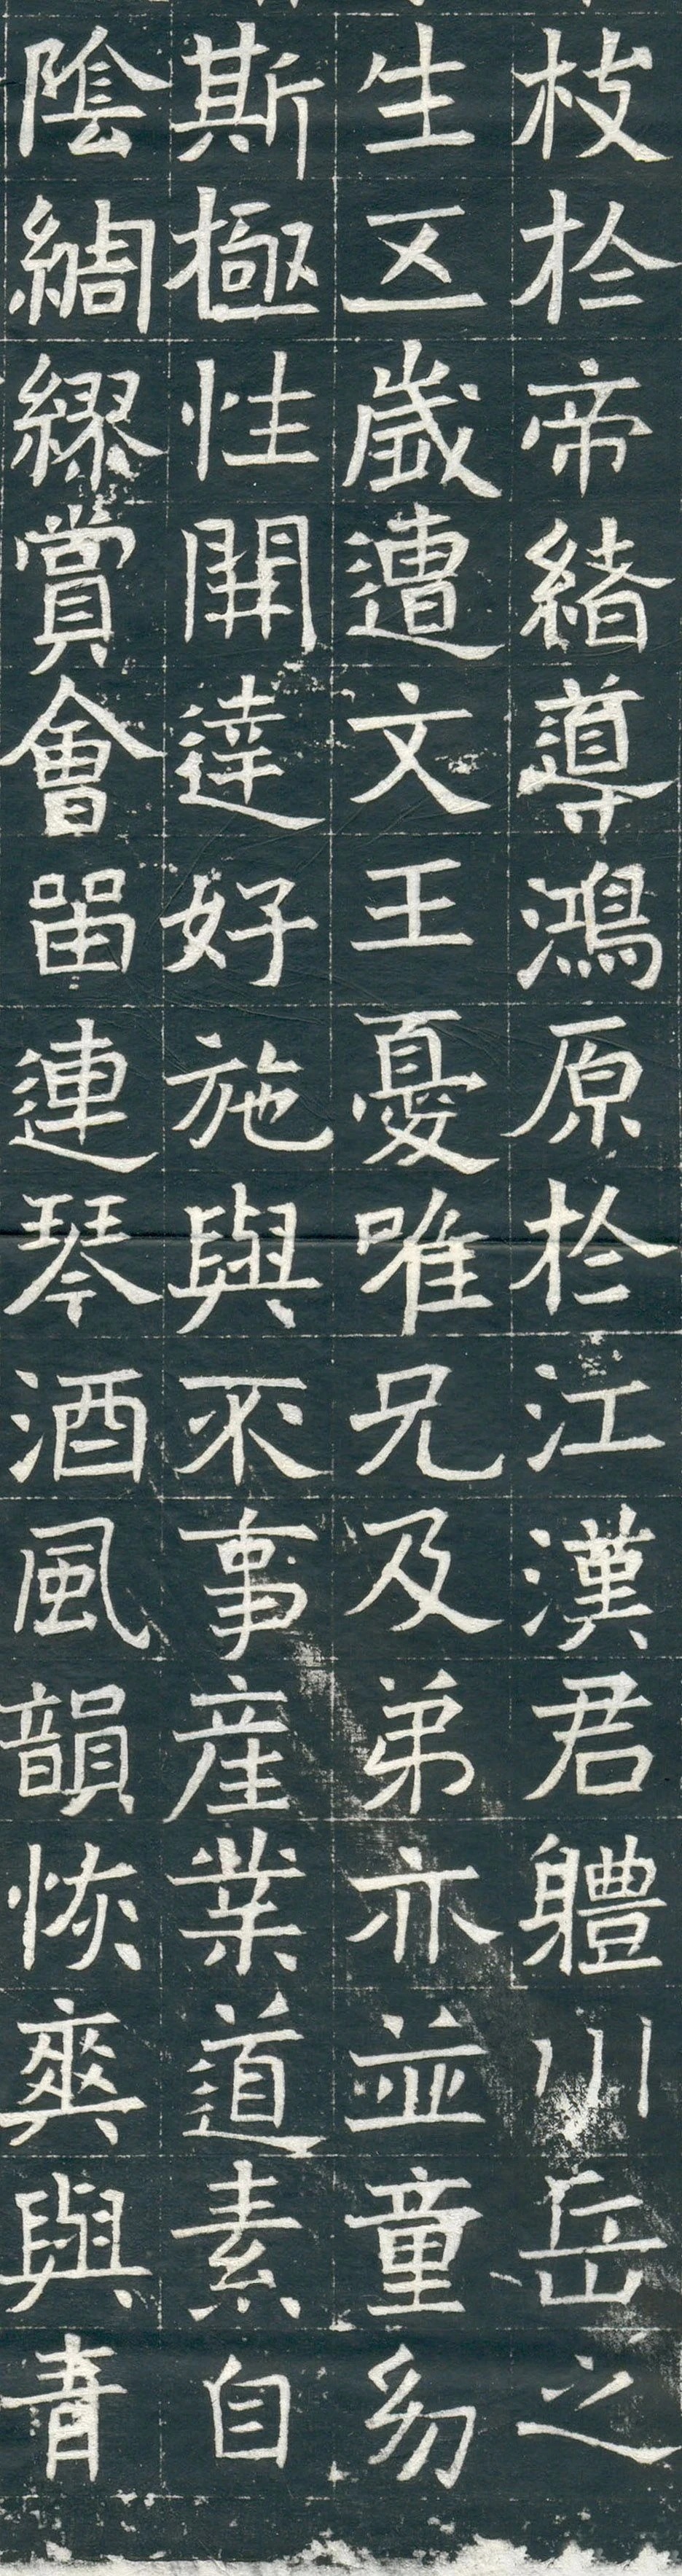 枝於帝緒導鴻原於江漢君體川岳之
生五歲遭文王憂唯兄及弟亦並童幼
斯極性開達好施與不事產業道素自
陰綢繆賞會留連琴酒風韻恢爽與青